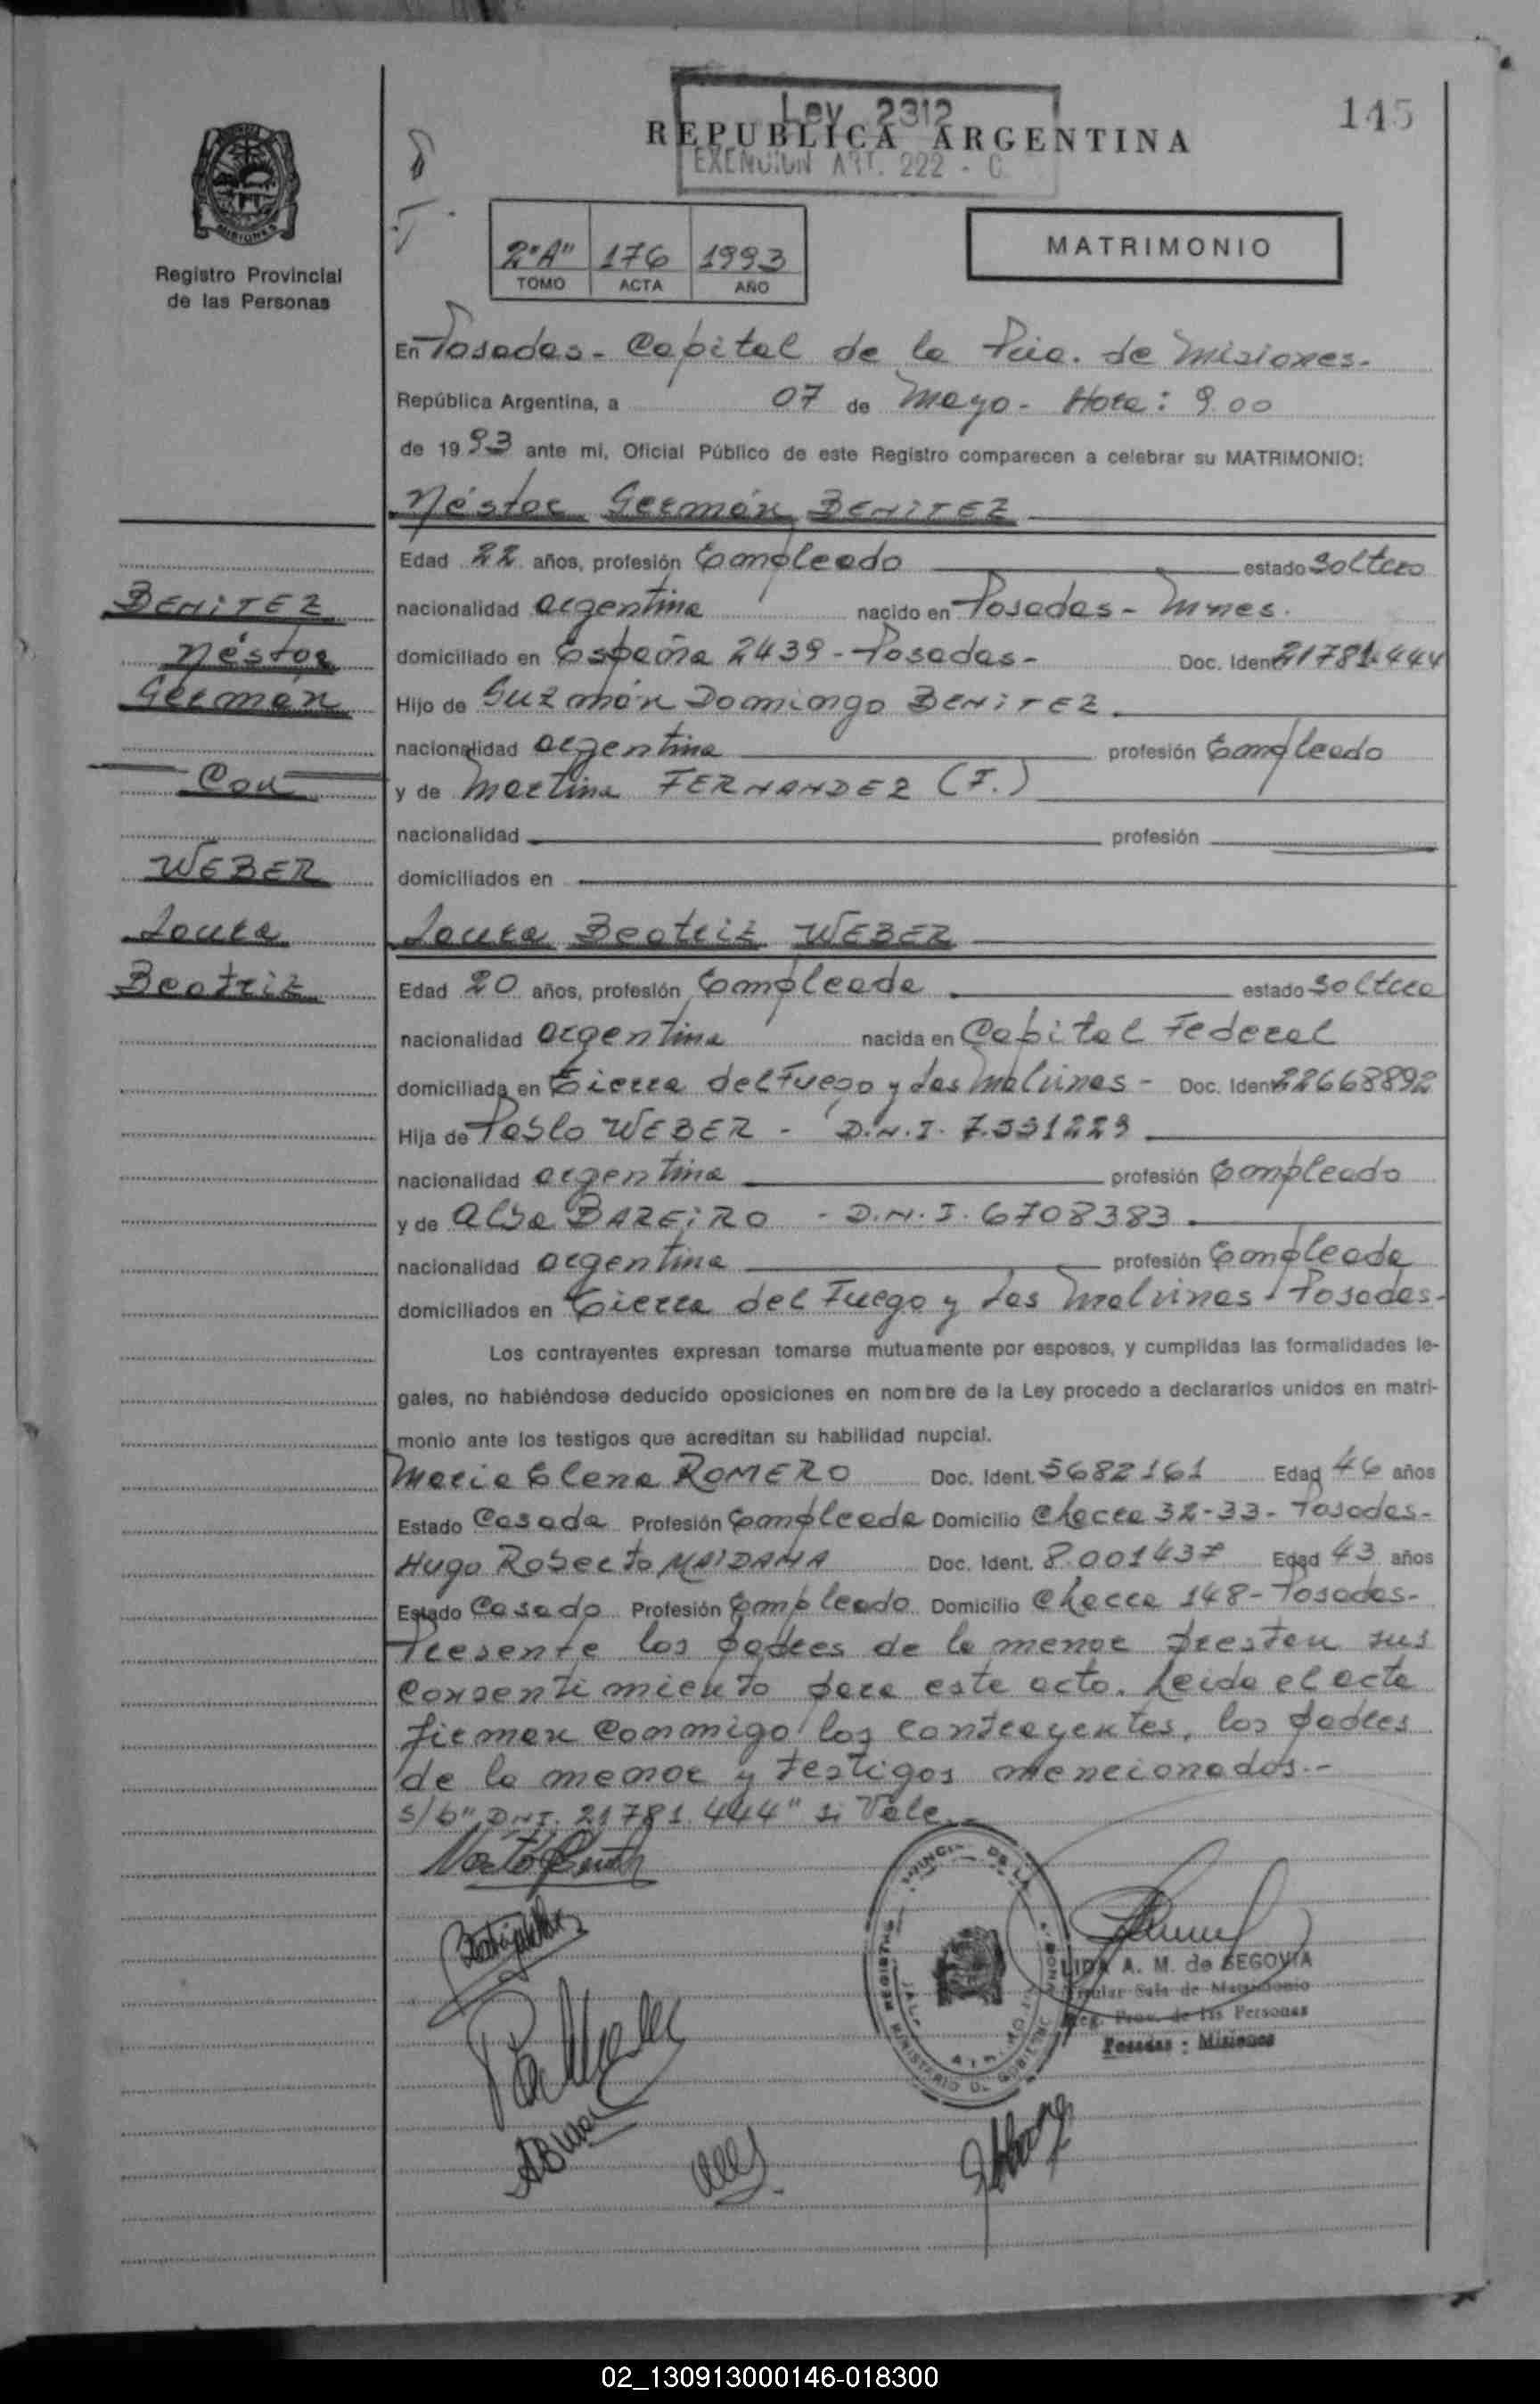 145
Ley 2312
REPUBLICA ARGENTINA
EXENCION ART. 222 - C
MISIONES
Registro Provincial
de las Personas
2º"A" 176 1993
TOMO ACTA AÑO
MATRIMONIO
En Posadas - Capital de la Pcia. de Misiones.-
República Argentina, a 07 de Mayo - Hora: 9.00
de 1993 ante mi, Oficial Público de este Registro comparecen a celebrar su MATRIMONIO:
Néstor Germán BENITEZ
Edad 22 años, profesión Empleado estado Soltero
BENITEZ
nacionalidad argentina nacido en Posadas - Mnes.
Néstor
domiciliado en España 2439 - Posadas - Doc. Ident. 21781.444
Germán
Hijo de Guzmán Domingo BENITEZ
nacionalidad argentina profesión Empleado
Con
y de Martina FERNANDEZ (F.)
nacionalidad profesión
WEBER
domiciliados en
Laura
Laura Beatriz WEBER
Beatriz
Edad 20 años, profesión Empleada estado Soltera
nacionalidad argentina nacida en Capital Federal
domiciliada en Tierra del Fuego y Las Malvinas - Doc. Ident. 22668892
Hija de Pablo WEBER - D.N.I. 7.591229
nacionalidad argentina profesión Empleado
y de Alba BAREIRO - D.N.I. 6708383
nacionalidad argentina profesión Empleada
domiciliados en Tierra del Fuego y Las Malvinas - Posadas-
Los contrayentes expresan tomarse mutuamente por esposos, y cumplidas las formalidades le-
gales, no habiéndose deducido oposiciones en nombre de la Ley procedo a declararlos unidos en matri-
monio ante los testigos que acreditan su habilidad nupcial.
Maria Elena ROMERO Doc. Ident. 5682161 Edad 46 años
Estado Casada Profesión Empleada Domicilio Chacra 32-33 - Posadas-
Hugo Roberto MAIDANA Doc. Ident. 8.001437 Edad 43 años
Estado Casado Profesión Empleado Domicilio Chacra 148 - Posadas-
Presente los padres de la menor prestan sus
consentimiento para este acto. Leida el acta
firman conmigo los contrayentes, los padres
de la menor y testigos mencionados.-
s/b" DNI. 21781.444" si Vale.-
LIDA A. M. de SEGOVIA
Titular Sala de Matrimonio
Reg. Prov. de las Personas
Posadas : Misiones
MINISTERIO DE GOBIERNO
02_130913000146-018300